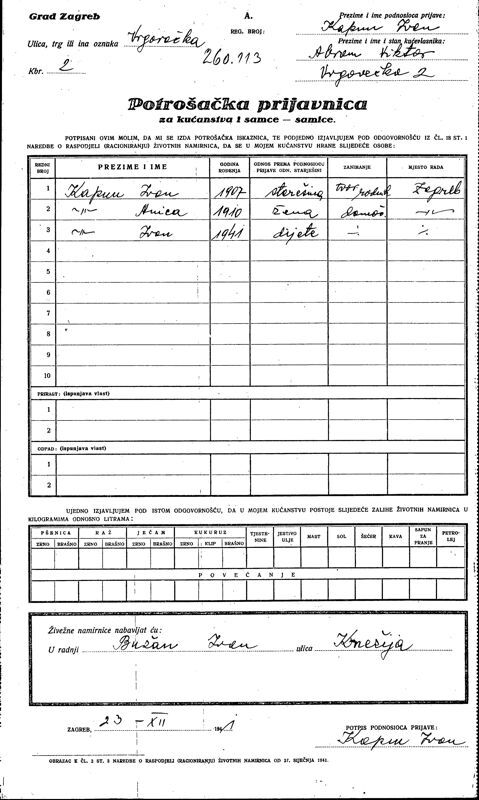 Grad Zagreb
A.
REG. BROJ:
260.113
Prezime i ime podnosioca prijave:
Kapun Ivan
Ulica, trg ili ina oznaka Vrgovečka
Prezime i ime i stan kućevlasnika:
Abram Viktor
Kbr. 2
Vrgovečka 2
Potrošačka prijavnica
za kućanstva i samce — samice.
POTPISANI OVIM MOLIM, DA MI SE IZDA POTROŠAČKA ISKAZNICA, TE PODJEDNO IZJAVLJUJEM POD ODGOVORNOŠĆU IZ ČL. 18 ST. 1
NAREDBE O RASPODJELI (RACIONIRANJU) ŽIVOTNIH NAMIRNICA, DA SE U MOJEM KUĆANSTVU HRANE SLIJEDEĆE OSOBE:
REDNI BROJ PREZIME I IME GODINA ROĐENJA ODNOS PREMA PODNOSIOCU PRIJAVE ODN. STARJEŠINI ZANIMANJE MJESTO RADA
1 Kapun Ivan 1907 starešina Zagreb
2 -"- Anica 1910 žena domać. -"-
3 -"- Ivan 1941 dijete
4
5
6
7
8
9
10
PRIRAST: (ispunjava vlast)
1
2
OTPAD: (ispunjava vlast)
1
2
UJEDNO IZJAVLJUJEM POD ISTOM ODGOVORNOŠĆU, DA U MOJEM KUĆANSTVU POSTOJE SLIJEDEĆE ZALIHE ŽIVOTNIH NAMIRNICA U
KILOGRAMIMA ODNOSNO LITRAMA:
PŠENICA RAŽ JEČAM KUKURUZ TJESTENINE JESTIVO ULJE MAST SOL ŠEĆER KAVA SAPUN ZA PRANJE PETROLEJ
ZRNO BRAŠNO ZRNO BRAŠNO ZRNO BRAŠNO ZRNO KLIP BRAŠNO
POVEĆANJE
Živežne namirnice nabavljat ću:
U radnji Bušan Ivan ulica Knežija
ZAGREB, 23 - XII 1941
POTPIS PODNOSIOCA PRIJAVE:
Kapun Ivan
OBRAZAC K ČL. 2 ST. 3 NAREDBE O RASPODJELI (RACIONIRANJU) ŽIVOTNIH NAMIRNICA OD 27. SIJEČNJA 1941.